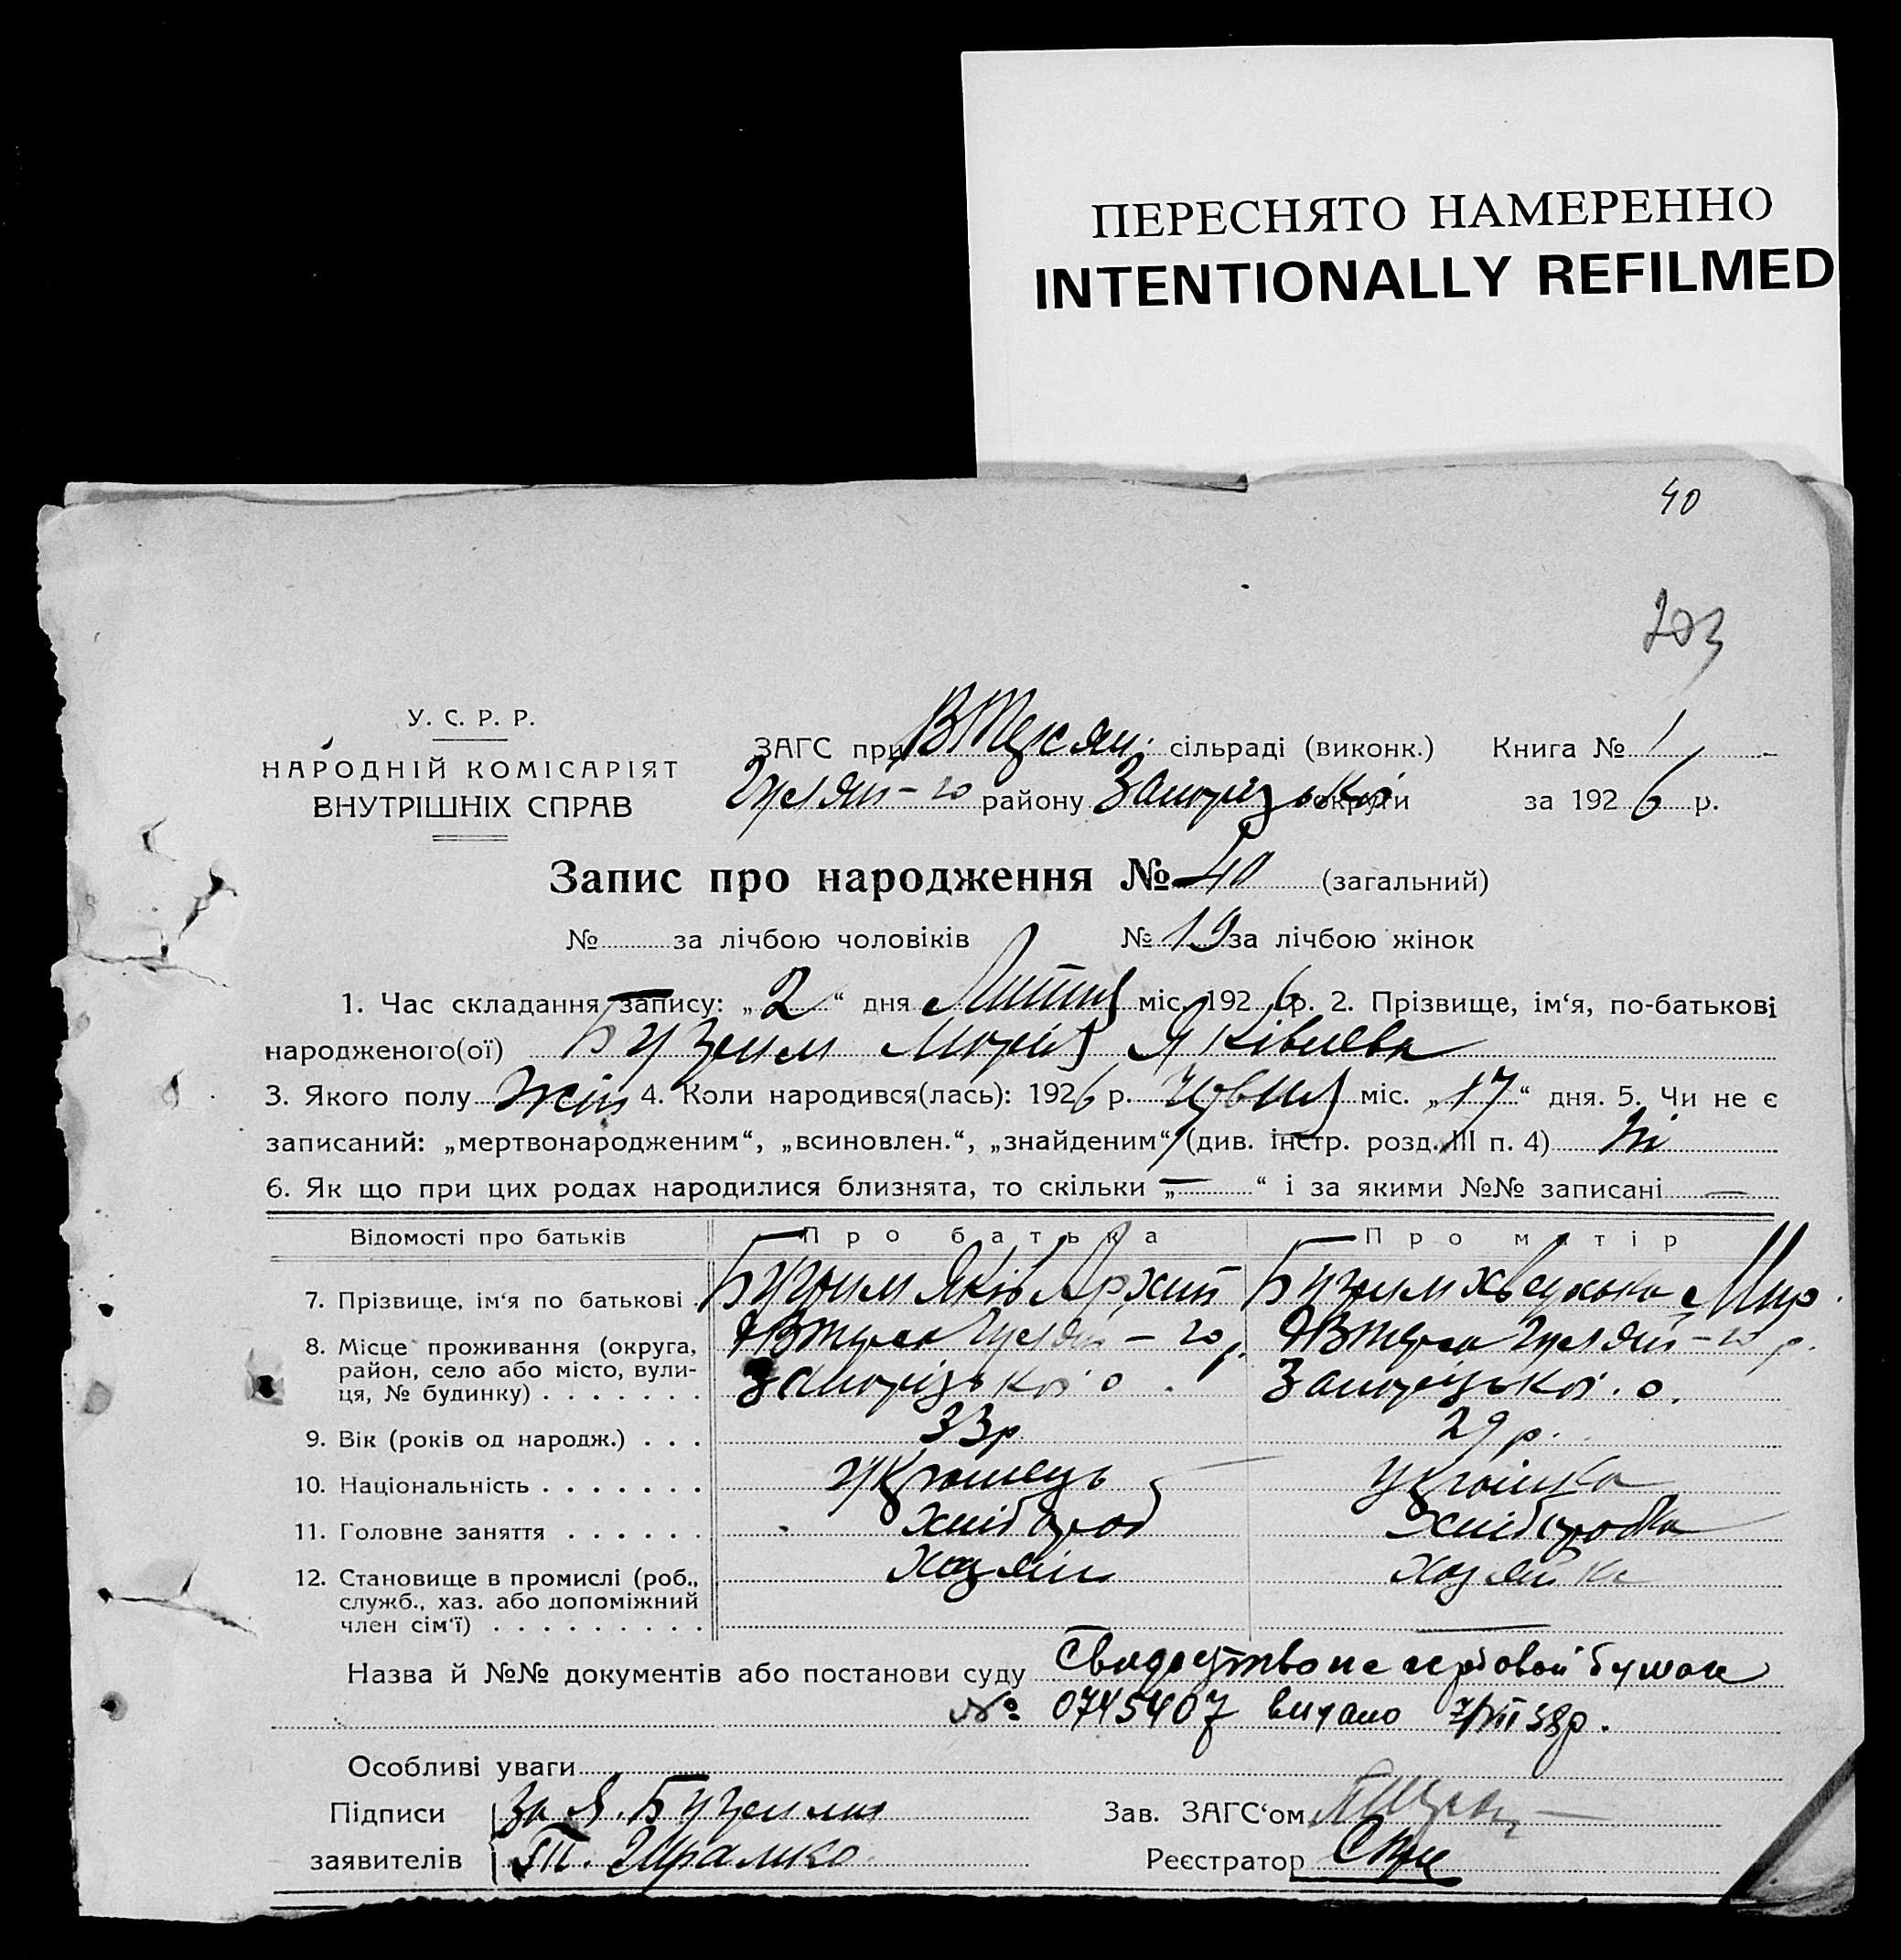 ПЕРЕСНЯТО НАМЕРЕННО
INTENTIONALLY REFILMED
40
203
У. С. Р. Р.
НАРОДНІЙ КОМІСАРІЯТ
ВНУТРІШНІХ СПРАВ
ЗАГС при сільраді (виконк.) Книга № 1
району Запорізької округи за 1926 р.
Запис про народження № 40 (загальний)
№ за лічбою чоловіків № 19 за лічбою жінок
1. Час складання запису: „2“ дня Липня міс. 1926 р. 2. Прізвище, ім‘я, по-батькові
народженого(ої) Марія Яківлева
3. Якого полу жін 4. Коли народився(лась): 1926 р. червня міс. „17“ дня. 5. Чи не є
записаний: „мертвонародженим“, „всиновлен.“, „знайденим“ (див. інстр. розд. III п. 4) ні
6. Як що при цих родах народилися близнята, то скільки „—“ і за якими №№ записані —
Відомості про батьків Про батька Про матір
7. Прізвище, ім‘я по батькові Яків Архип
8. Місце проживання (округа,
район, село або місто, вули-
ця, № будинку) Запорізької о. Запорізької о.
9. Вік (років од народж.) 33 р 29 р.
10. Національність Українець Українка
11. Головне заняття хлібороб хліборобка
12. Становище в промислі (роб., хазяїн хазяйка
служб., хаз. або допоміжний
член сім‘ї)
Назва й №№ документів або постанови суду Свидоцтво на гербовой бумаге
№ 0745407 видано 7/VII 38р.
Особливі уваги
Підписи за Я. Зав. ЗАГС‘ом
заявителів Реєстратор